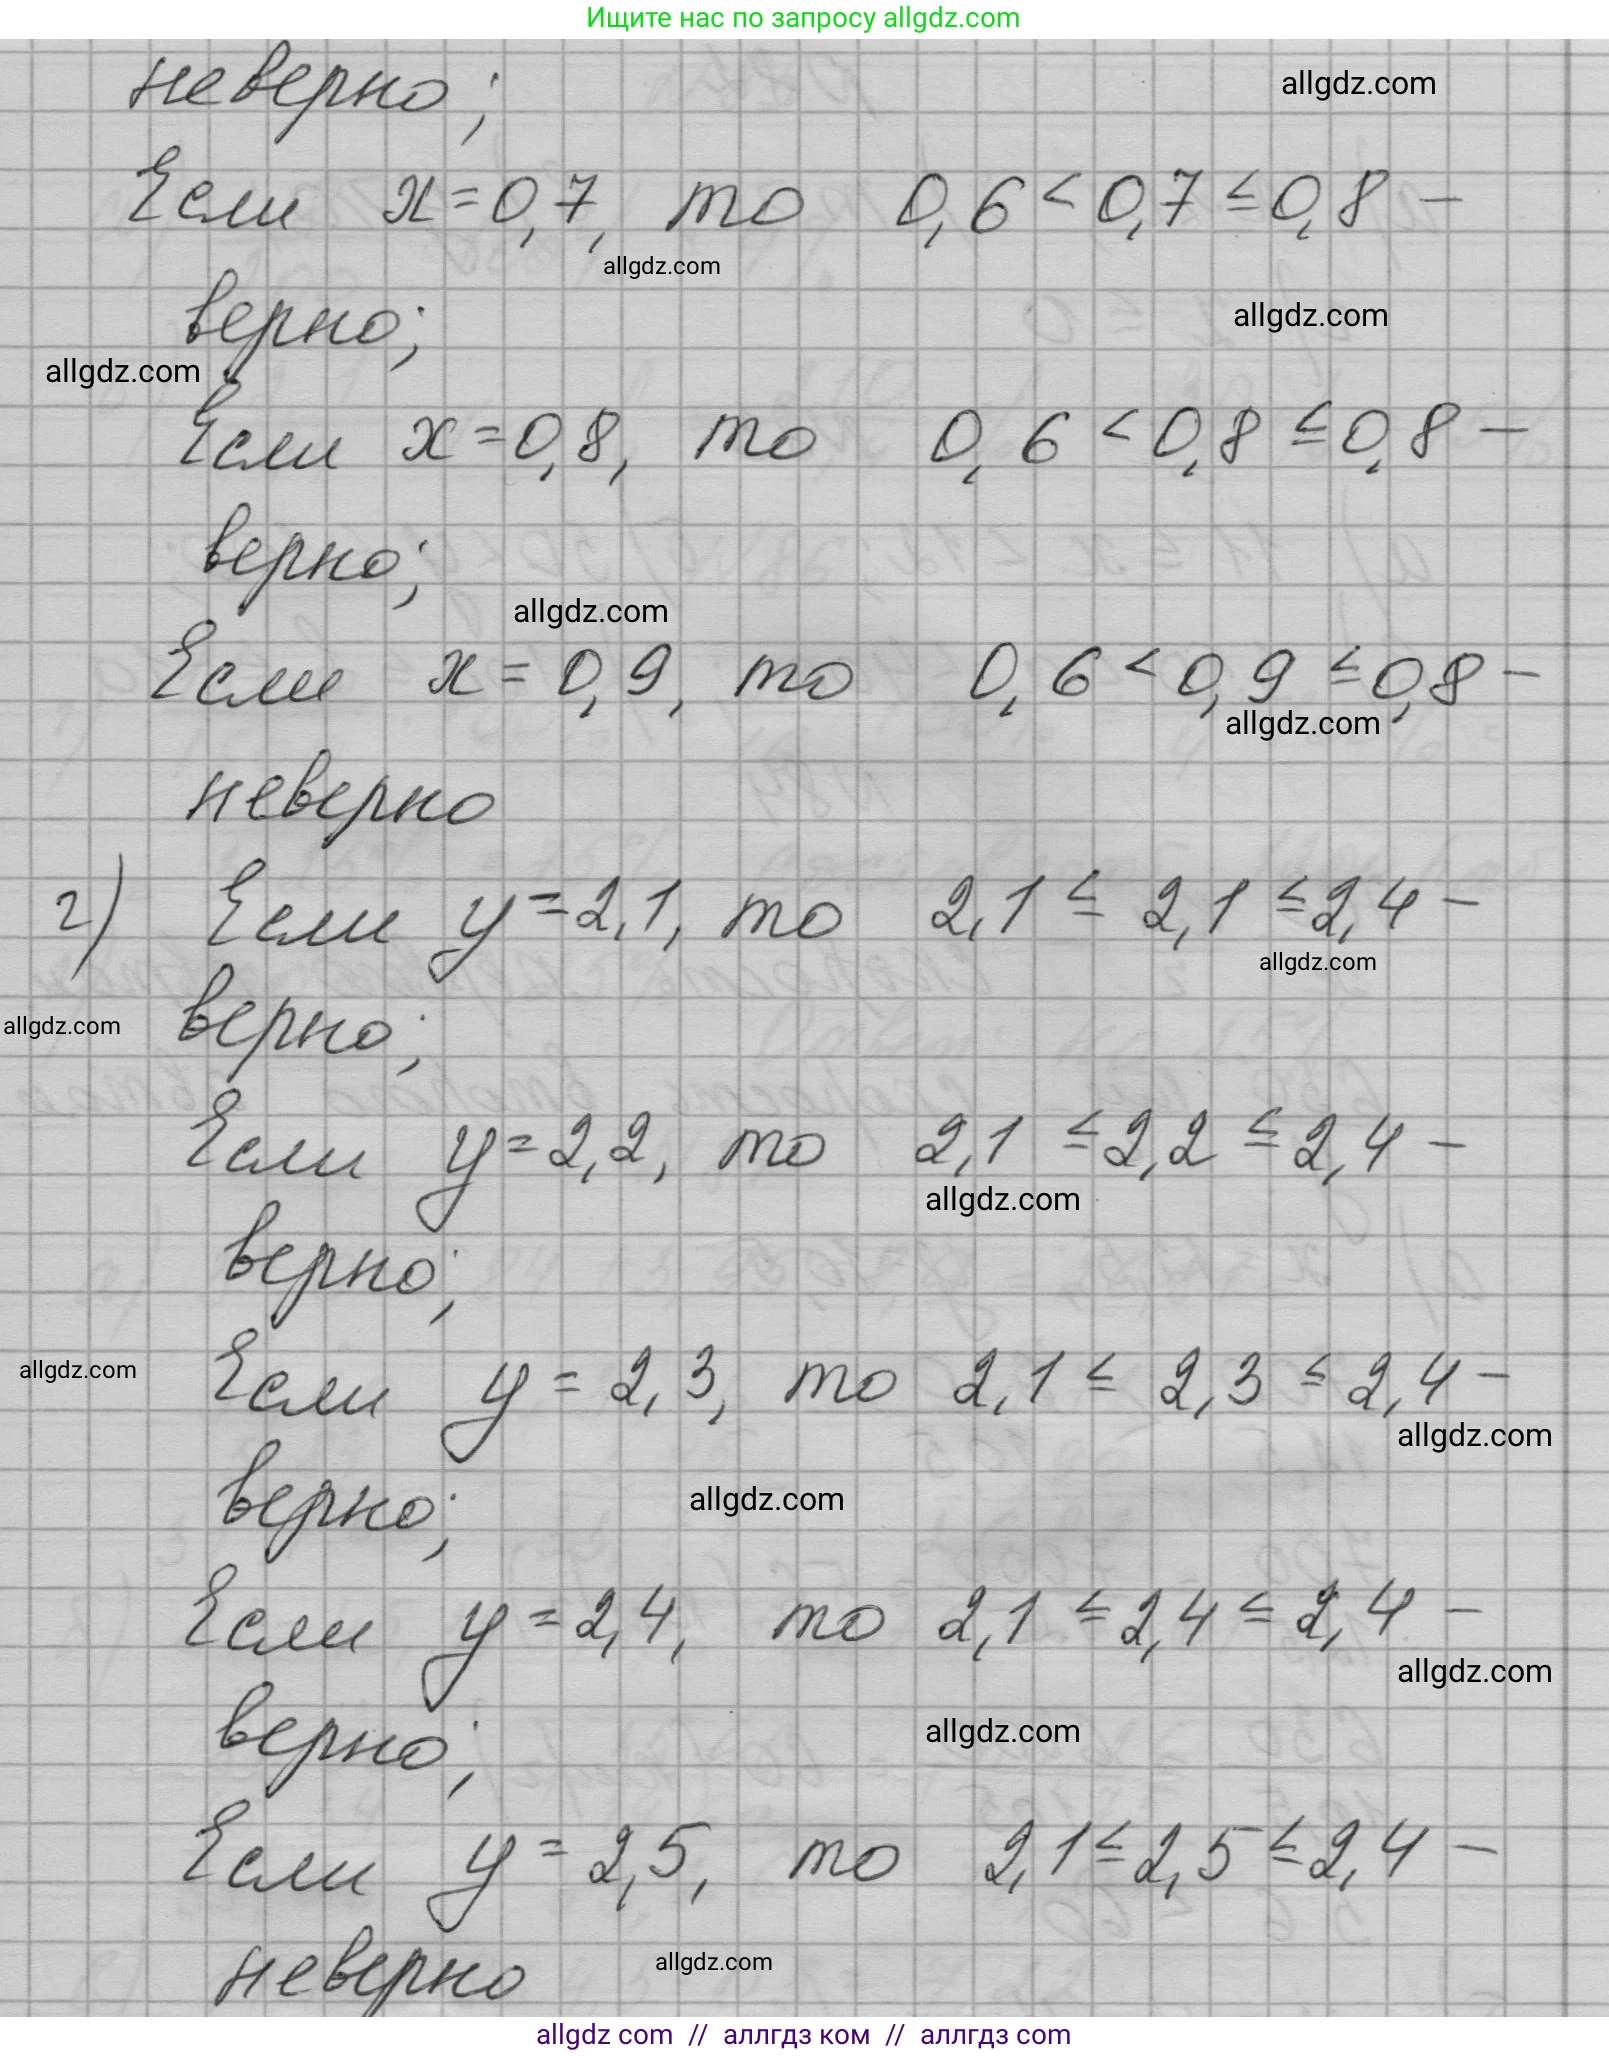 Ищите нас по запросу allgdz.com
неверно;
allgdz.com
Если x=0,7, то 0,6<0,7≤0,8 –
allgdz.com
верно;
allgdz.com
allgdz.com
Если x=0,8, то 0,6<0,8≤0,8 –
верно;
allgdz.com
Если x=0,9, то 0,6<0,9≤0,8 –
allgdz.com
неверно
г) Если y=2,1, то 2,1≤2,1≤2,4 –
allgdz.com
верно;
allgdz.com
Если y=2,2, то 2,1≤2,2≤2,4 –
allgdz.com
верно;
Если y=2,3, то 2,1≤2,3≤2,4 –
allgdz.com
allgdz.com
верно;
allgdz.com
Если y=2,4, то 2,1≤2,4≤2,4 –
allgdz.com
верно;
allgdz.com
Если y=2,5, то 2,1≤2,5≤2,4 –
неверно
allgdz.com
allgdz com // аллгдз ком // аллгдз com